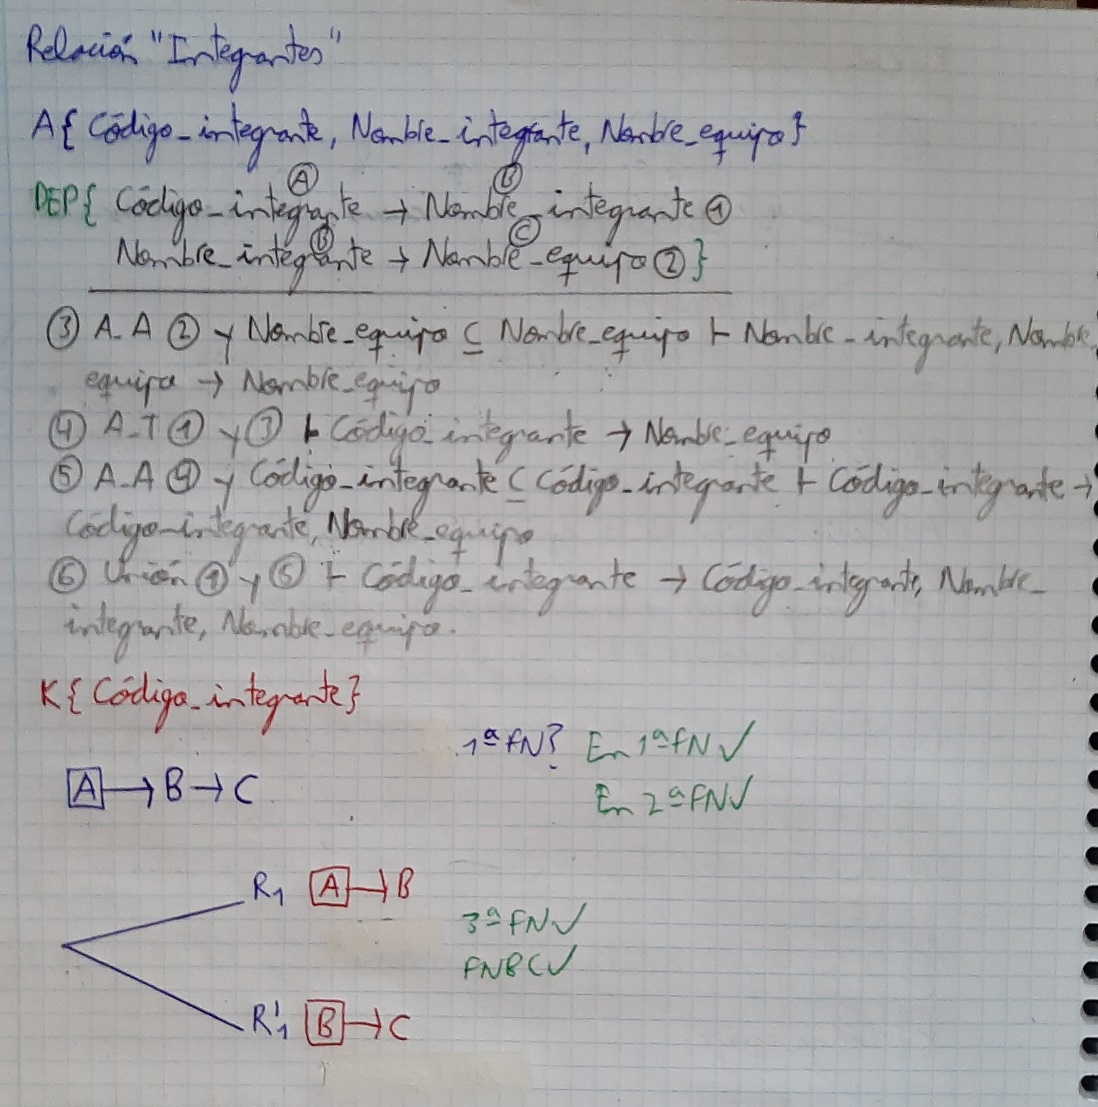 Relación "Integrantes"
A{ Código_integrante, Nombre_integrante, Nombre_equipo}
DEP{ Código_integrante → Nombre_integrante ①
Ⓐ Ⓑ
Nombre_integrante → Nombre_equipo ② }
Ⓑ Ⓒ
③ A.A ② y Nombre_equipo ⊆ Nombre_equipo ⊢ Nombre_integrante, Nombre
equipo → Nombre_equipo
④ A.T ① y ③ ⊢ Código_integrante → Nombre_equipo
⑤ A.A ④ y Código_integrante ⊆ Código_integrante ⊢ Código_integrante →
Código_integrante, Nombre_equipo
⑥ Unión ① y ⑤ ⊢ Código_integrante → Código_integrante, Nombre_
integrante, Nombre_equipo.
K{ Código_integrante}
1ª FN? En 1ª FN ✓
A → B → C
En 2ª FN ✓
R1 A → B
3ª FN ✓
FNBC ✓
R'1 B → C